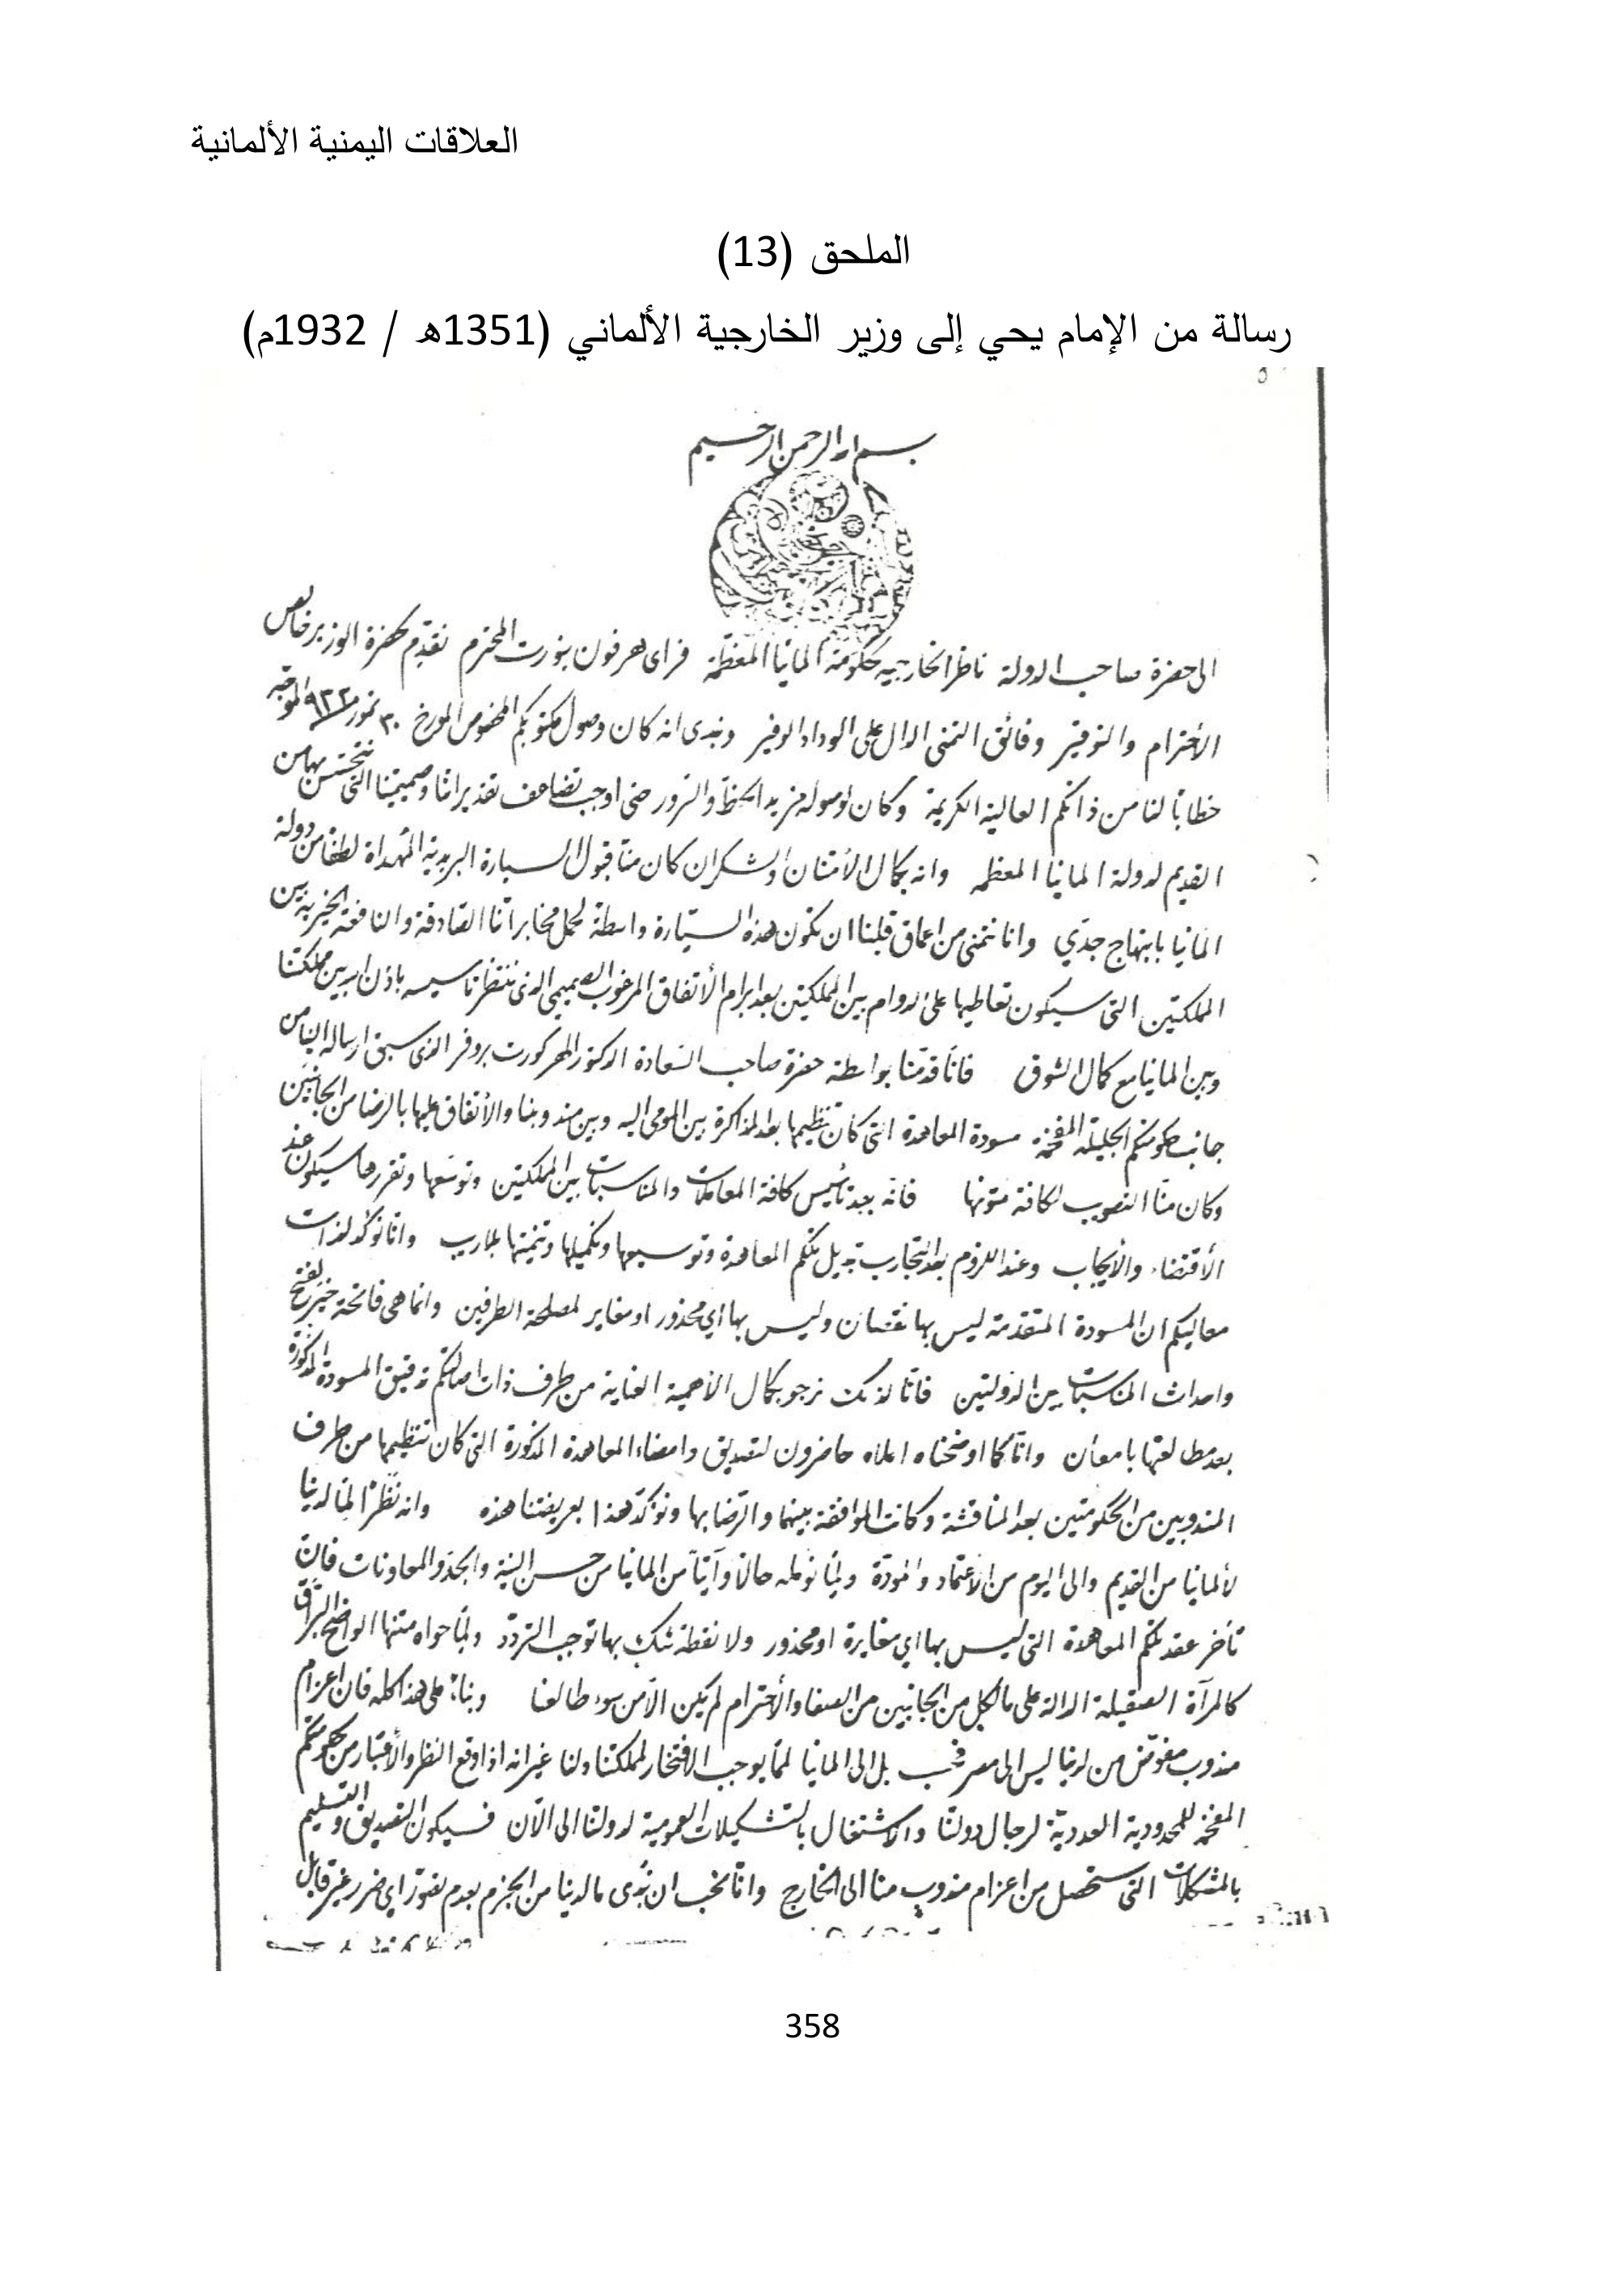 العلاقات اليمنية الألمانية
الملحق (13)
رسالة من الإمام يحي إلى وزير الخارجية الألماني (1351ه / 1932م)
بسم الله الرحمن الرحيم
الى حضرة صاحب الدولة ناظر الخارجيه حكومة المانيا المعظمة فراى هر فون نورت المحترم نقدم لحضرة الوزير خالص
الأحترام والتوقير وفائق التمنى الدال على الوداد الوفير ونبدى انه كان وصول مكتوبكم المخصوص المورخ ٣٠ تموز ٩٣٢
خطابًا لنا من ذاتكم العالية الكريمة وكان لوصوله مزيد الحظ والسرور حتى اوجب تضاعف تقديراتنا وصميميتنا التى بها من
القديم لدولة المانيا المعظمه وانه بكمال الأمتنان والشكران كان منّا قبول السيارة البريدية المهداة لطفًا من دولة
المانيا بابتهاج جدّي وانا نتمنى من اعماق قلبنا ان تكون هذه السيّارة واسطة لحمل مخابراتنا الصادقة والنافعة الخيرية بين
المملكتين التى سيكون تعاطيها على الدوام بين المملكتين بعد ابرام الأتفاق المرغوب الصميمي الذى ننتظر تاسيسه باذن الله بين مملكتنا
وبين المانيا مع كمال الشوق فانّا قدّمنا بواسطة حضرة صاحب السّعادة الدكتور الهر كورت بروفر الذى سبق ارساله الينا من
جانب حكومتكم الجليلة المفخمة مسودة المعاهدة التى كان تنظيمها بعد المذاكرة بين المومى اليه وبين مندوبنا والأتفاق عليها بالرضا من الجانبين
وكان منّا التصويب لكافة متونها فانّه بعد تأسيس كافة المعاملات والمناسبات بين المملكتين وتوسّعها وتقررها سيكون عند
الأقتضاء والأيجاب وعند اللزوم بعد التجارب تبديل تلكم المعاهدة وتوسيعها وتكميلها وتتميتها بلا ريب وانا نؤكد لذات
معاليكم ان المسودة المتقدمة ليس بها نقصان وليس بها اي محذور او مغاير لمصلحة الطرفين وانما هى فاتحة خير لفتح
واحداث المناسبات بين الدولتين فانّا لذلك نرجو بكمال الأهمية العناية من طرف ذات اصالتكم تدقيق المسودة المذكورة
بعد مطالعتها بامعان وانّا كما اوضحناه اعلاه حاضرون لتصديق وامضاء المعاهدة المذكورة التى كان تنظيمها من طرف
المندوبين من الحكومتين بعد المناقشة وكانت الموافقة بينهما والرّضا بها ونؤكّد هذا بعريضتنا هذه وانه نظرًا لما لدينا
لألمانيا من القديم والى اليوم من الأعتماد والمودّة ولما نؤمله حالاً وآتياً من المانيا من حسن النية والجدّ والمعاونات فان
تأخر عقد تلكم المعاهدة التى ليس بها اي مغايرة او محذور ولا نقطة شك بها توجب التردّد ولما حواه متنها الواضح البرّاق
كالمرآة الصقيلة الدالة على ما لكل من الجانبين من الصفا والأحترام لم يكن الّا من سوء طالعنا وبناءً على هذا كله فان اعزام
مندوب مفوّض من لدنيا ليس الى مصر فحسب بل الى المانيا لما يوجب الافتخار لمملكتنا ولنا غير انه اذا وقع النظر والأعتبار من حكومتكم
المفخمة للمحدودية العددية لرجال دولتنا والاشتغال بالتشكيلات العمومية لدولتنا الى الآن فسيكون التصديق والتسليم
بالمشكلات التى ستحصل من اعزام مندوب منا الى الخارج وانّا نحب ان نؤى ما لدينا من الجزم بعدم تصوّر اي ضرر غير قابل
358